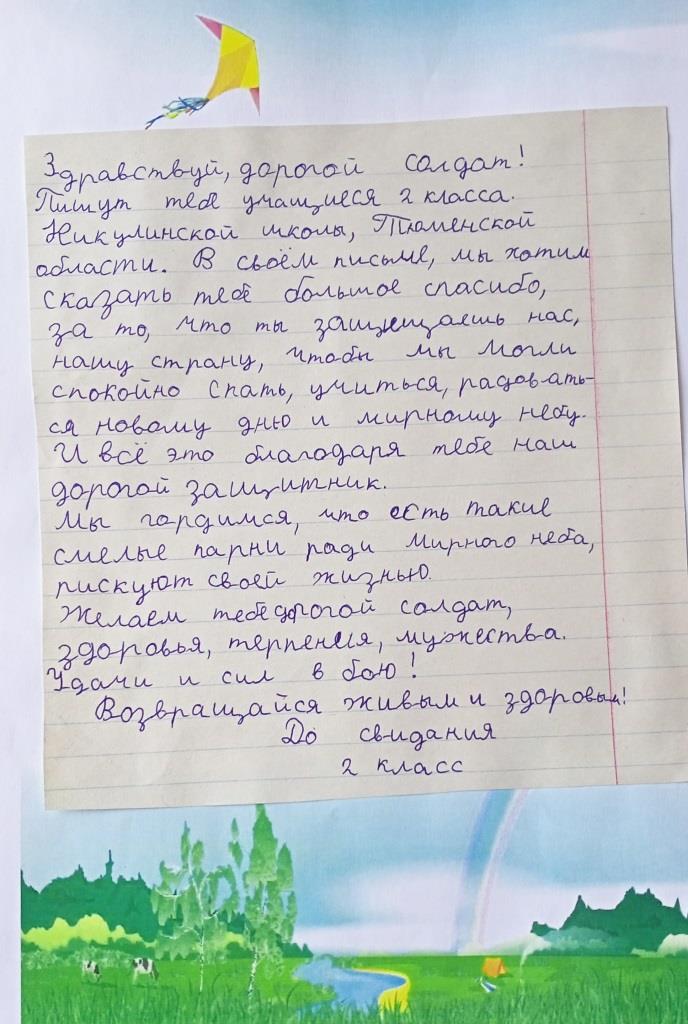 Здравствуй, дорогой солдат!
Пишут тебе учащиеся 2 класса.
Никулинской школы, Тюменской
области. В своём письме, мы хотим
сказать тебе большое спасибо,
за то, что ты защищаешь нас,
нашу страну, чтобы мы могли
спокойно спать, учиться, радовать-
ся новому дню и мирному небу.
И всё это благодаря тебе наш
дорогой защитник.
Мы гордимся, что есть такие
смелые парни ради мирного неба,
рискуют своей жизнью.
Желаем тебе дорогой солдат,
здоровья, терпения, мужества.
Удачи и сил в бою!
Возвращайся живым и здоровым!
До свидания
2 класс